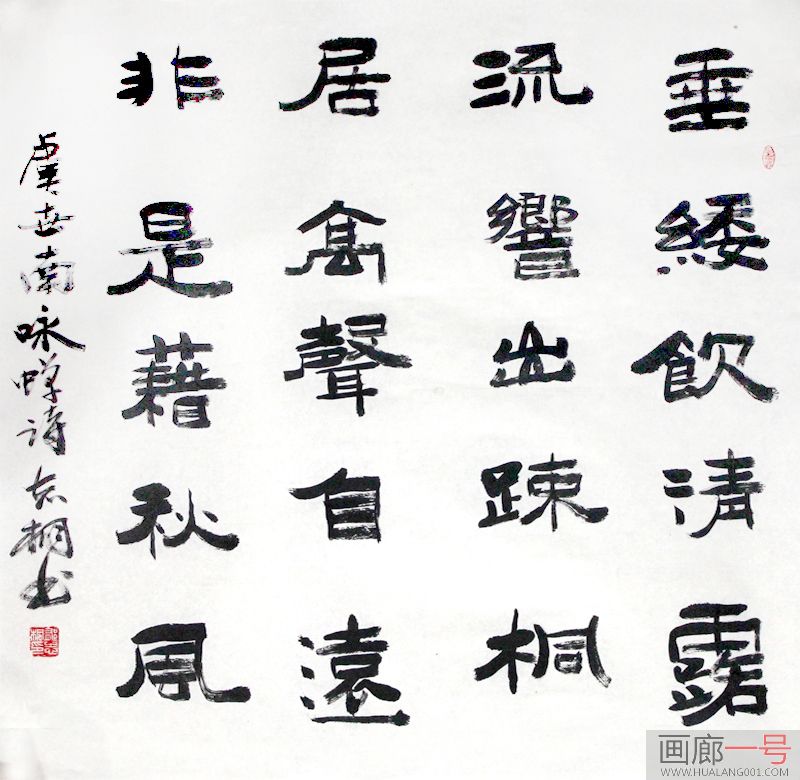 垂緌飲清露
流響出疎桐
居高聲自遠
非是藉秋風
虞世南咏蝉诗 志桐书
画廊一号
WWW.HUALANG001.COM